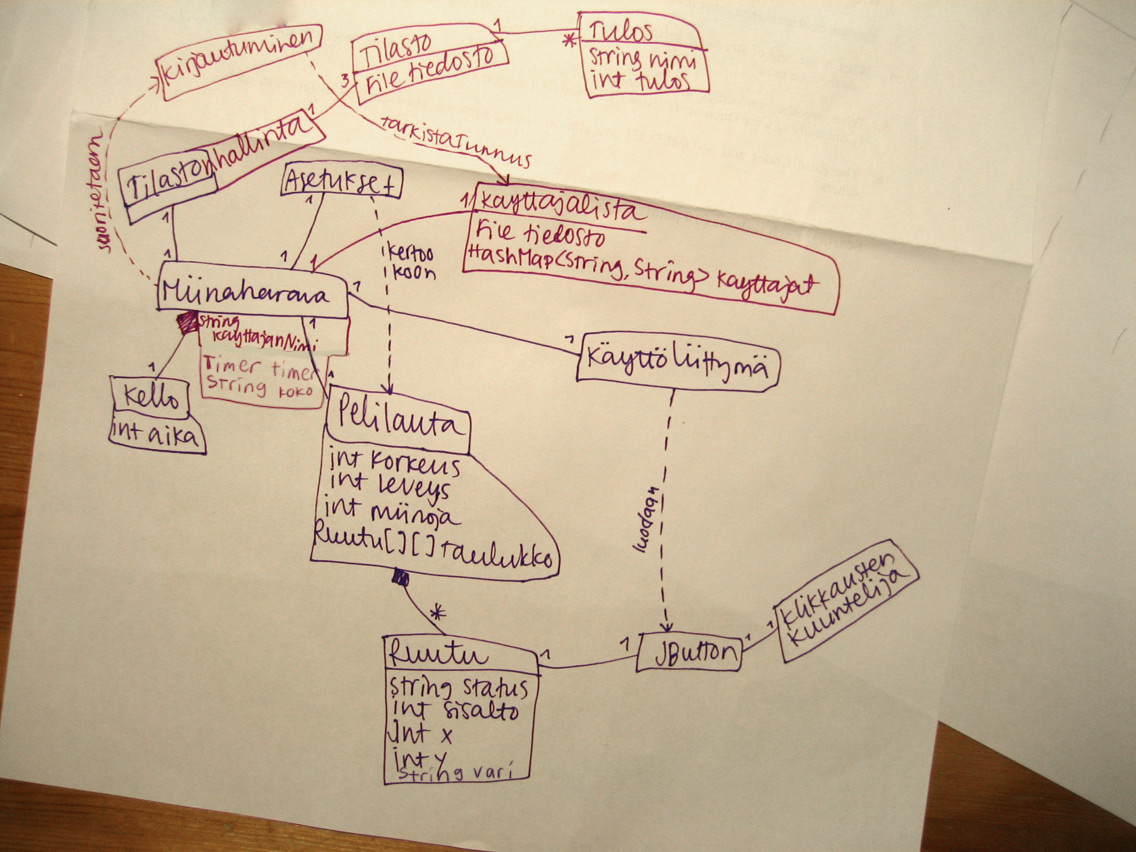 Kirjautuminen
Tilasto
File tiedosto
1
*
Tulos
String nimi
int tulos
3
1
Tilastonhallinta
tarkistaTunnus
suoritetaan
Asetukset
1
1
1
1
1
kertoo
koon
1
Käyttäjälista
File tiedosto
HashMap<String, String> käyttäjät
Miinaharava
1
String
käyttäjänNimi
Timer timer
String koko
1
1
Käyttöliittymä
1
Kello
int aika
1
Pelilauta
int korkeus
int leveys
int miinoja
Ruutu[][] taulukko
luodaan
*
Ruutu
String status
int sisältö
Int x
int y
String vari
1
1
JButton
1
1
Klikkausten
kuuntelija